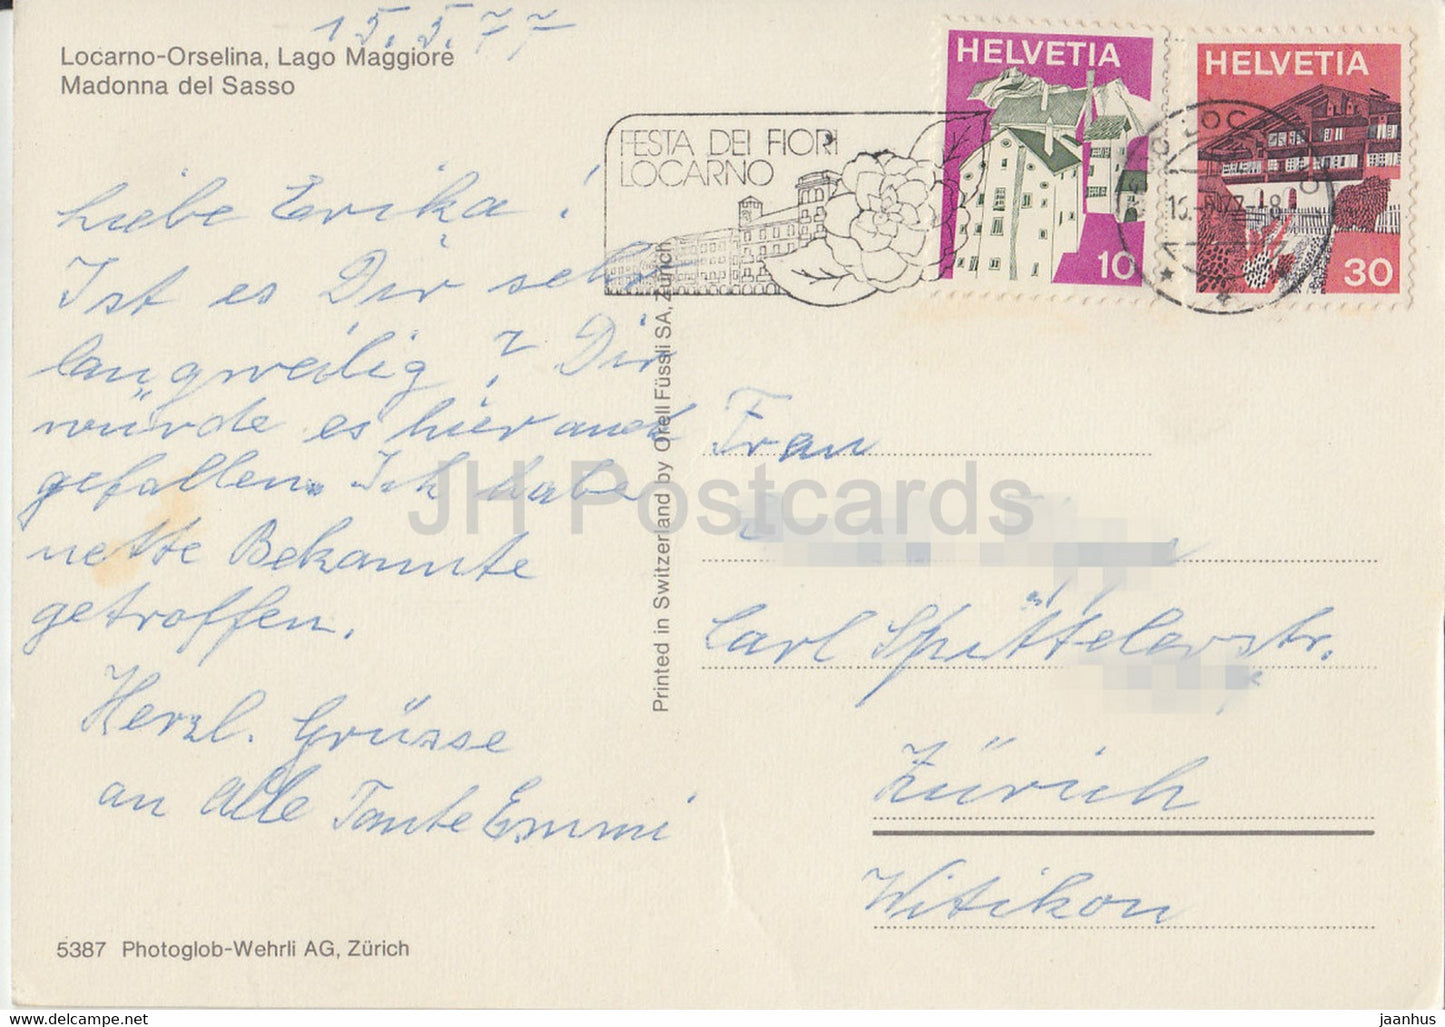 15.5.77
Locarno-Orselina, Lago Maggiore
Madonna del Sasso
HELVETIA
10
HELVETIA
30
FESTA DEI FIORI
LOCARNO
Liebe Erika!
Ist es Dir sehr
langweilig? Dir
würde es hier auch
gefallen. Ich habe
nette Bekannte
getroffen.
Herzl. Grüsse
an alle Tante Emmi
Printed in Switzerland by Orell Füssli SA, Zürich
Frau
Carl Spittelerstr.
Zürich
Witikon
5387 Photoglob-Wehrli AG, Zürich
JH Postcards
jaanhus